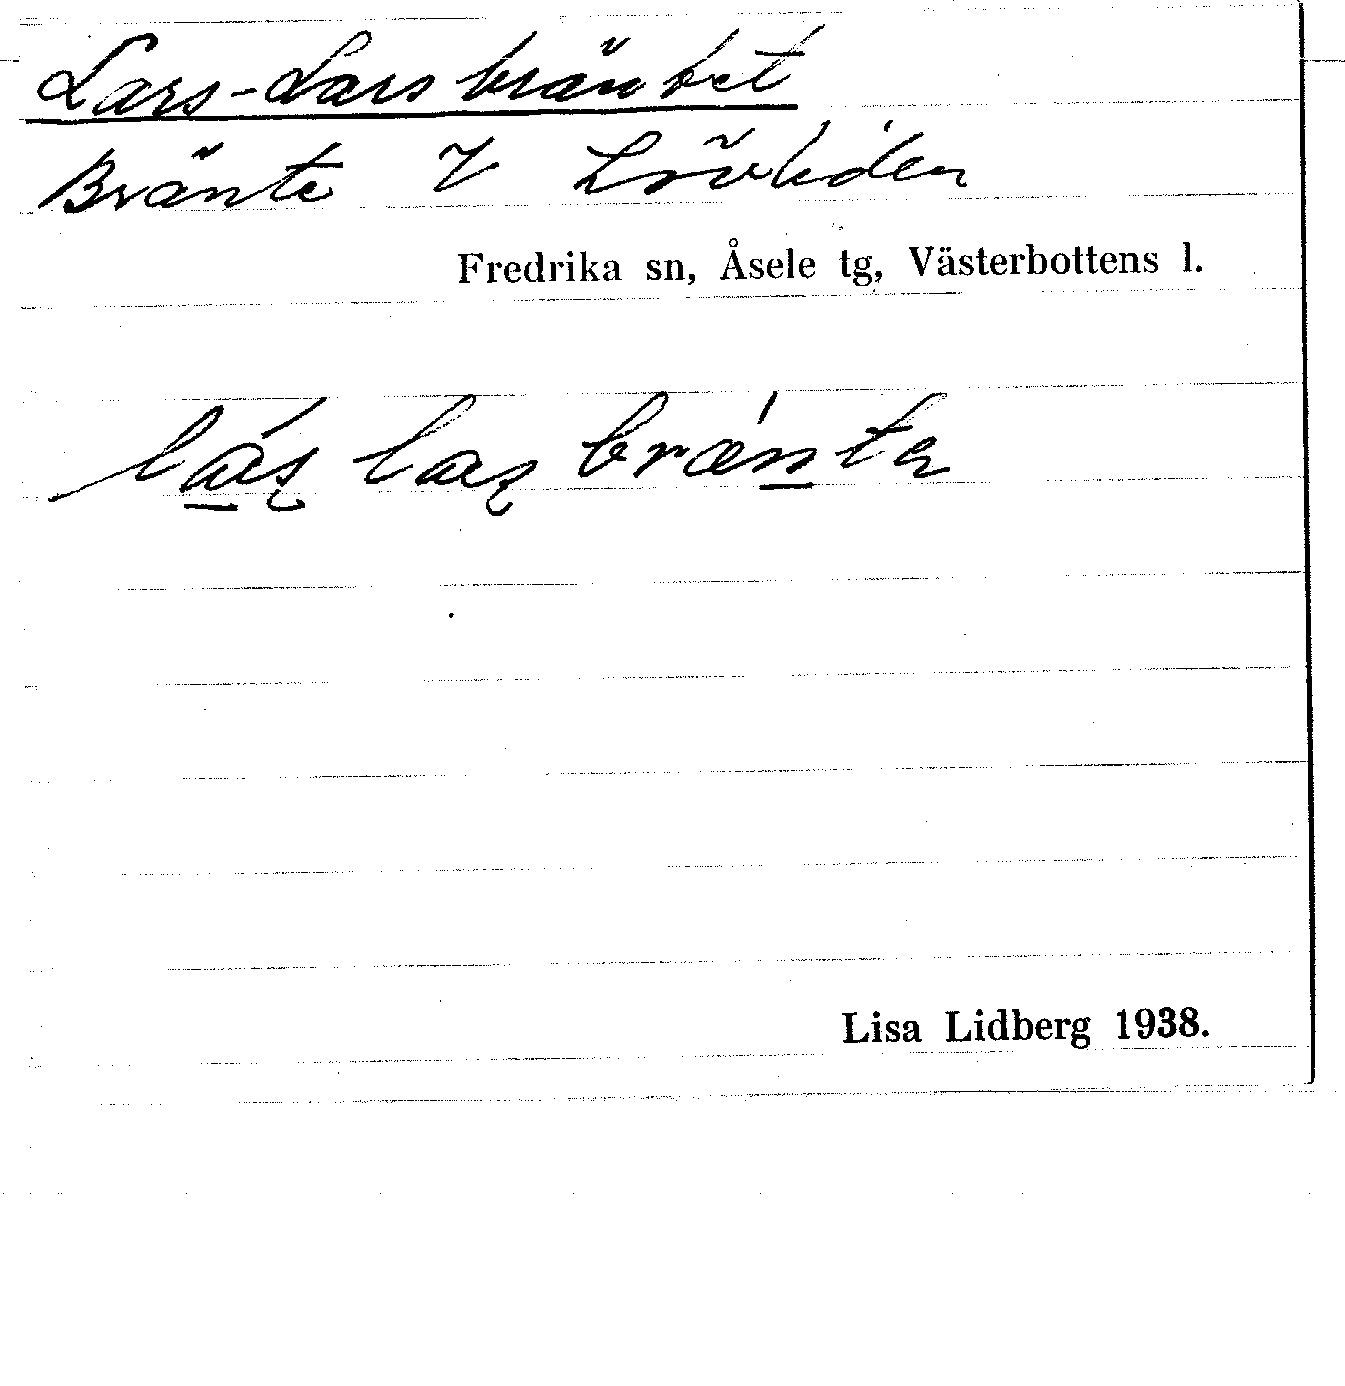 Lars-Larsbräntet
Bränte V Lövliden
Fredrika sn, Åsele tg, Västerbottens l.
Lisa Lidberg 1938.